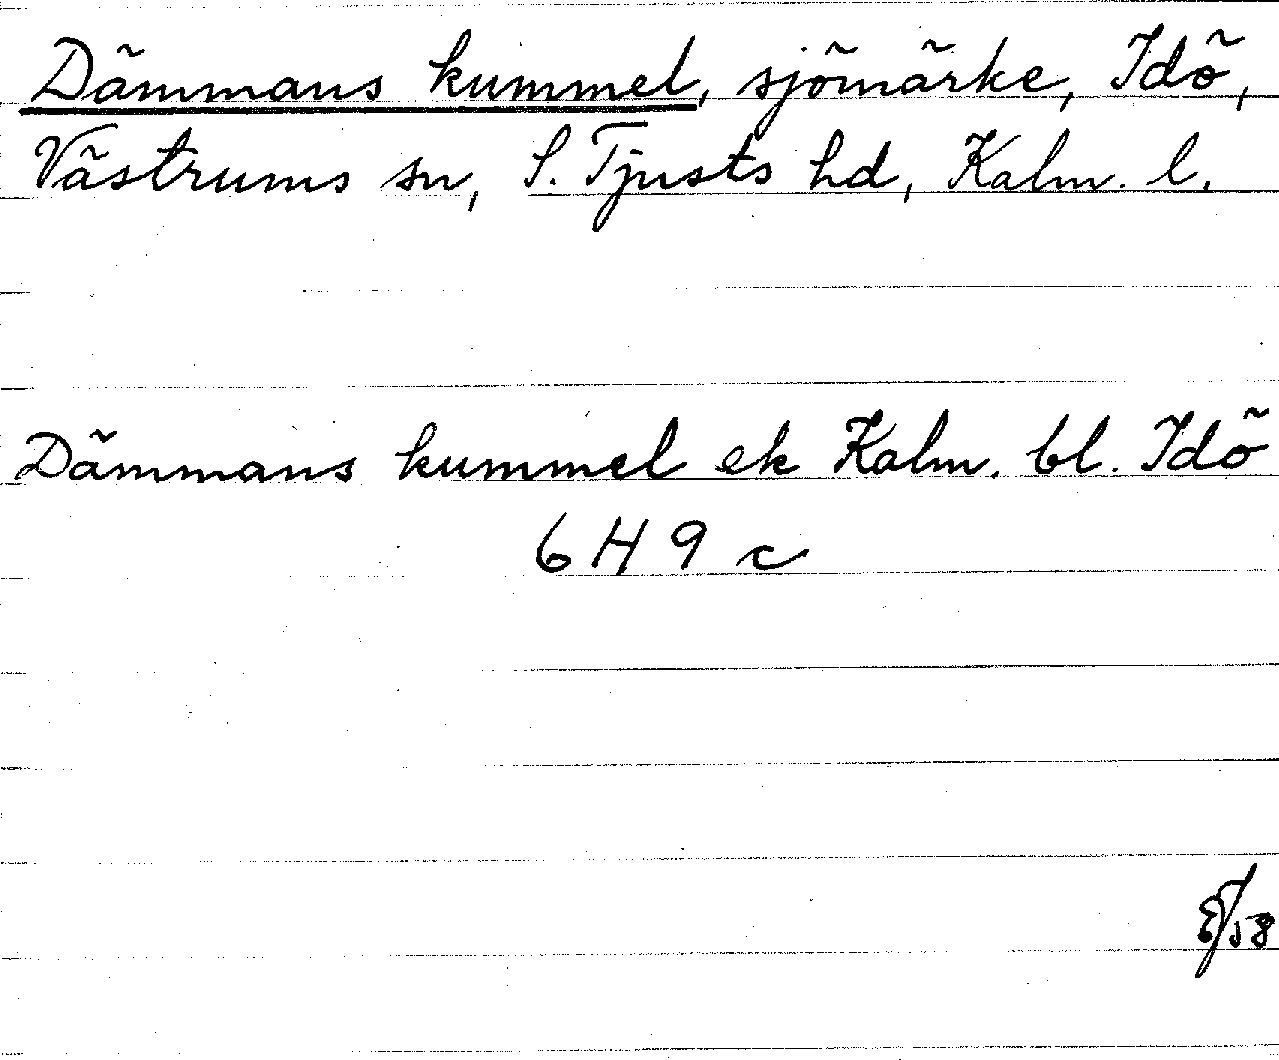 Dämmans kummel, sjömärke, Idö,
Västrums sn, S. Tjusts hd, Kalm. l.
Dämmans kummel ek Kalm. bl. Idö
6 H 9 c
/58